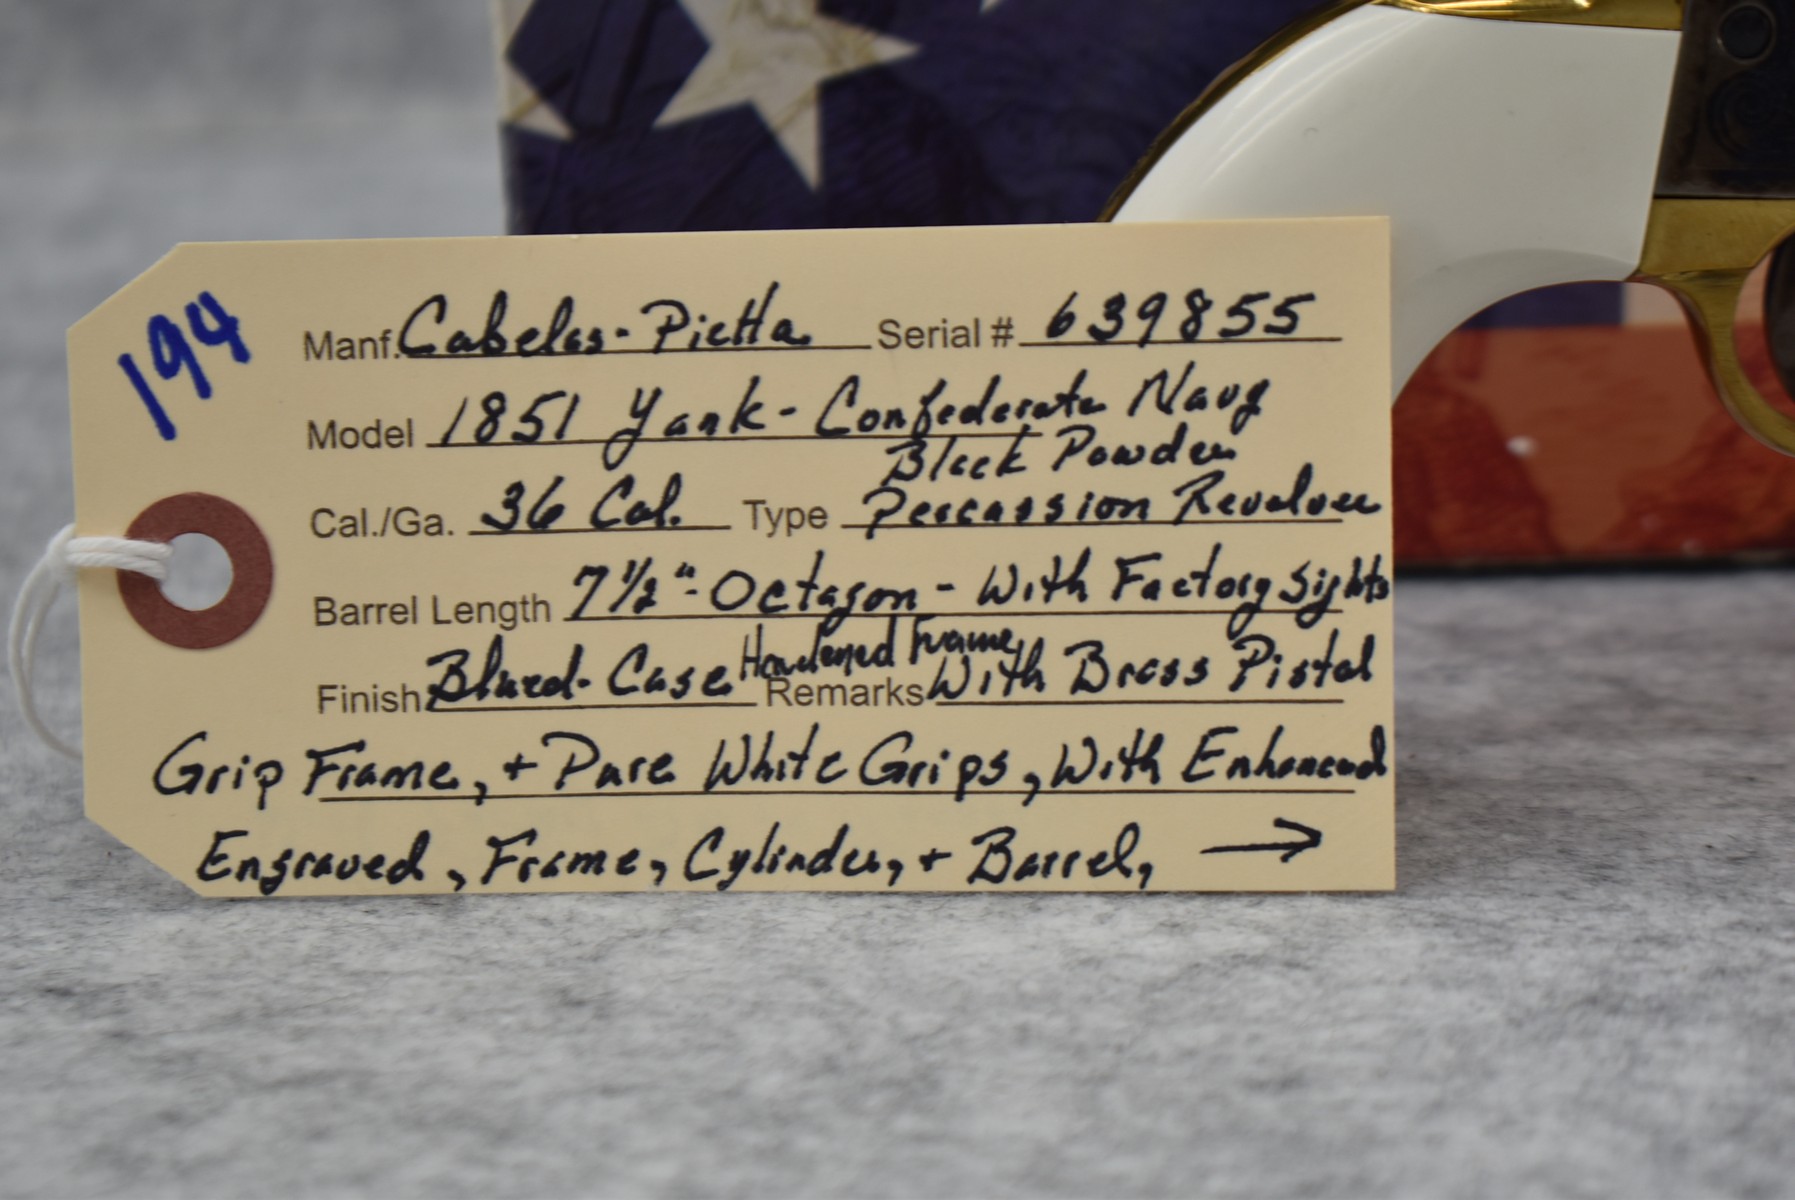 194
Manf. Cabelas - Pietta Serial # 639855
Model 1851 Yank - Confederate Navy
Black Powder
Cal./Ga. 36 Cal. Type Percussion Revolver
Barrel Length 7 1/2" - Octagon - With Factory Sights
Hardened Frame,
Finish Blued - Case Remarks With Brass Pistol
Grip Frame, + Pure White Grips, With Enhanced
Engraved, Frame, Cylinder, + Barrel, →